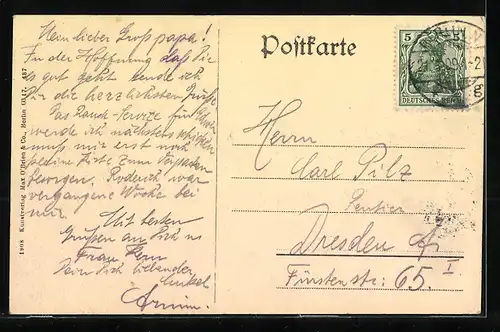 Mein lieber Großpapa!
In der Hoffnung daß Dir
es gut geht sende ich
Dir die herzlichsten Grüße
Das Rauch-Service für
werde ich nächstens schicken
muß mir erst noch
eine Kiste zum
besorgen. Roderich war
vergangene Woche bei
mir.
Mit besten
Grüßen an Dich u
Frau
Dein Dich liebender
Enkel
Armin.
1908 Kunstverlag Max O'Brien & Co., Berlin 457
Postkarte
5
DEUTSCHES REICH
BERLIN
Herrn
Carl Pilz
Rentier
Dresden A/I
Fürstenstr: 65.